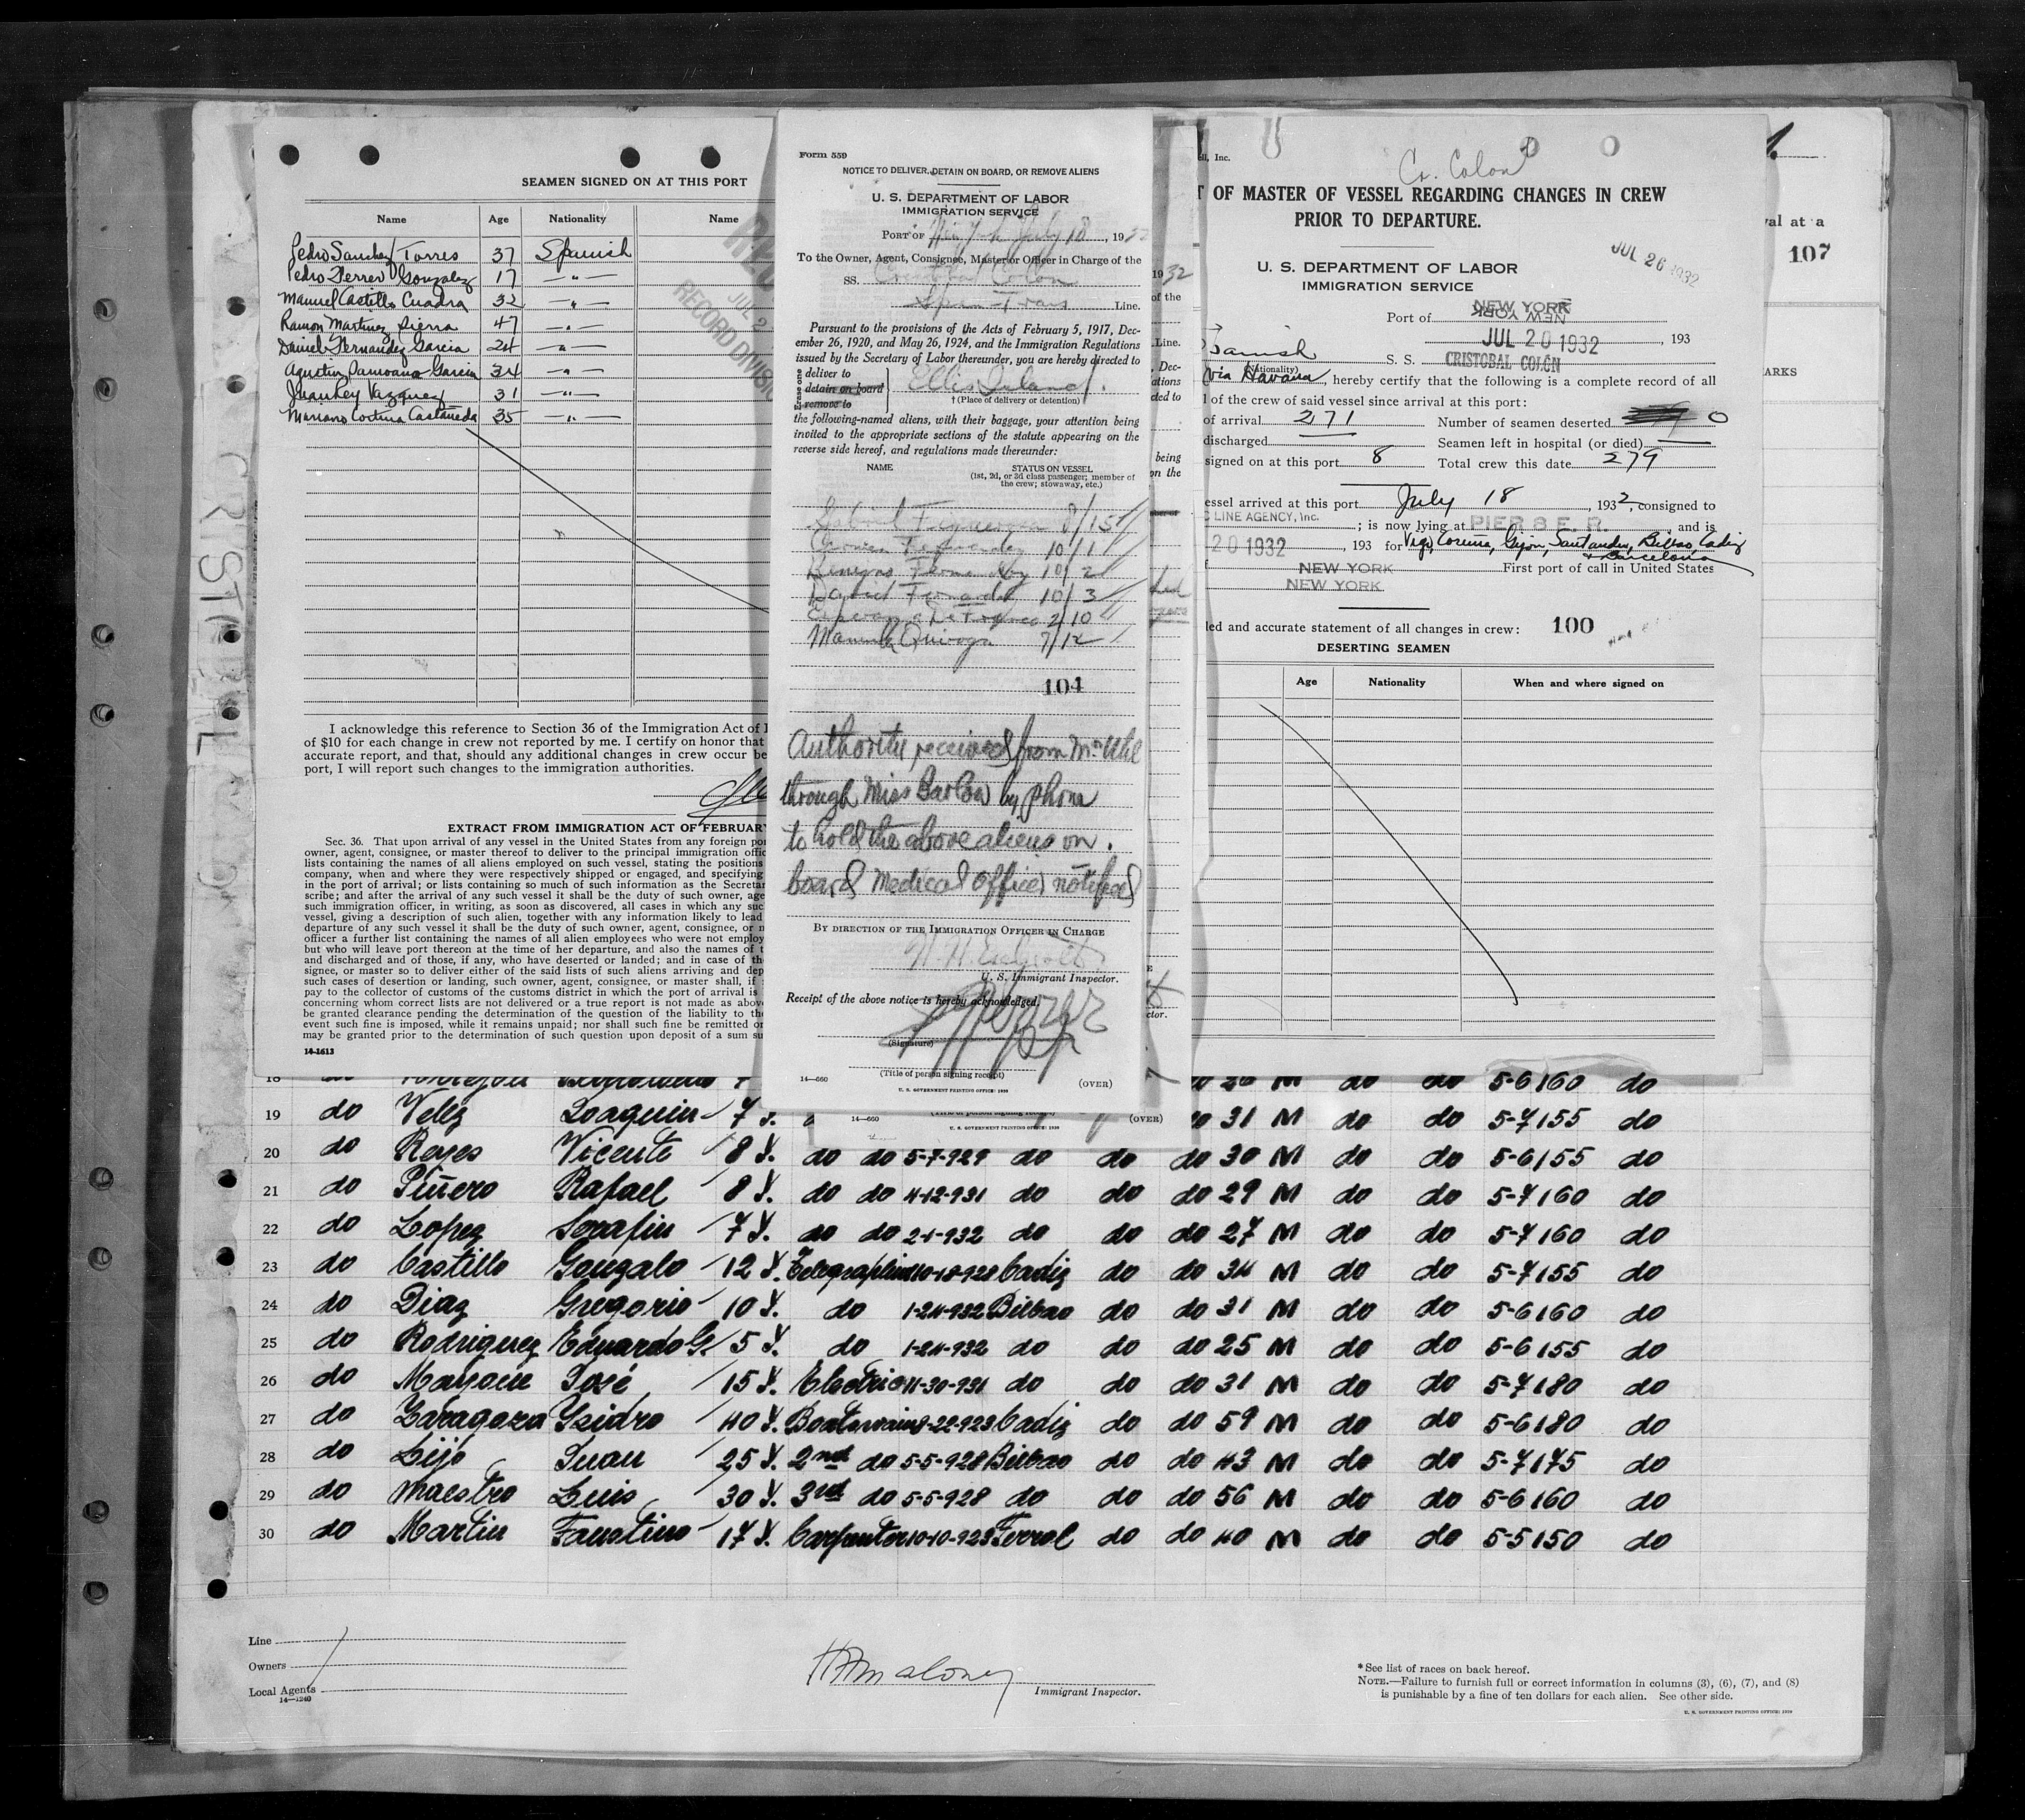 SEAMEN SIGNED ON AT THIS PORT
Name Age Nationality Name
Pedro Sanchez Torres 37 Spanish
Pedro Ferrer Gonzalez 17 — " —
Manuel Castillo Cuadra 32 — " —
Ramon Martinez Sierra 47 — " —
Daniel Fernandez Garcia 24 — " —
Agustin Garcia 34 — " —
Juan Rey Vazquez 31 — " —
Mariano Cortina Castañeda 35 — " —
RECORD DIVISION
JUL 2
I acknowledge this reference to Section 36 of the Immigration Act of
of $10 for each change in crew not reported by me. I certify on honor that
accurate report, and that, should any additional changes in crew occur be
port, I will report such changes to the immigration authorities.
EXTRACT FROM IMMIGRATION ACT OF FEBRUARY
Sec. 36. That upon arrival of any vessel in the United States from any foreign po
owner, agent, consignee, or master thereof to deliver to the principal immigration offic
lists containing the names of all aliens employed on such vessel, stating the positions
company, when and where they were respectively shipped or engaged, and specifying
in the port of arrival; or lists containing so much of such information as the Secretar
scribe; and after the arrival of any such vessel it shall be the duty of such owner, age
such immigration officer, in writing, as soon as discovered, all cases in which any suc
vessel, giving a description of such alien, together with any information likely to lead
departure of any such vessel it shall be the duty of such owner, agent, consignee, or m
officer a further list containing the names of all alien employees who were not employ
but who will leave port thereon at the time of her departure, and also the names of t
and discharged and of those, if any, who have deserted or landed; and in case of th
signee, or master so to deliver either of the said lists of such aliens arriving and dep
such cases of desertion or landing, such owner, agent, consignee, or master shall, if
pay to the collector of customs of the customs district in which the port of arrival is
concerning whom correct lists are not delivered or a true report is not made as above
be granted clearance pending the determination of the question of the liability to the
event such fine is imposed, while it remains unpaid; nor shall such fine be remitted or
may be granted prior to the determination of such question upon deposit of a sum su
14-1613
Form 559
NOTICE TO DELIVER, DETAIN ON BOARD, OR REMOVE ALIENS
U. S. DEPARTMENT OF LABOR
IMMIGRATION SERVICE
PORT OF New York July 18, 1932
To the Owner, Agent, Consignee, Master or Officer in Charge of the
SS. Cristobal Colon
Span-Trans Line.
Pursuant to the provisions of the Acts of February 5, 1917, Dec-
ember 26, 1920, and May 26, 1924, and the Immigration Regulations
issued by the Secretary of Labor thereunder, you are hereby directed to
Erase one
deliver to
detain on board Ellis Island.
remove to
†(Place of delivery or detention)
the following-named aliens, with their baggage, your attention being
invited to the appropriate sections of the statute appearing on the
reverse side hereof, and regulations made thereunder:
NAME STATUS ON VESSEL
(1st, 2d, or 3d class passenger; member of
the crew; stowaway, etc.)
8/15
Fernandez 10/1
10/2
David Fernandez 10/3
2/10
Quiroga 7/12
104
Authority received from Mr Uhl
through Miss Barlow by phone
to hold the above aliens on
board Medical Officer notified
BY DIRECTION OF THE IMMIGRATION OFFICER IN CHARGE
U. S. Immigrant Inspector.
Receipt of the above notice is hereby acknowledged.
(Signature)
(Title of person signing receipt)
14—660 (OVER)
U. S. GOVERNMENT PRINTING OFFICE: 1930
14—660 (Title of person signing receipt) (OVER)
U. S. GOVERNMENT PRINTING OFFICE: 1930
ell, Inc.
Cr. Colon
T OF MASTER OF VESSEL REGARDING CHANGES IN CREW
PRIOR TO DEPARTURE.
JUL 26 1932
U. S. DEPARTMENT OF LABOR
IMMIGRATION SERVICE
Port of NEW YORK
JUL 20 1932, 193
Spanish S. S. CRISTOBAL COLÓN
(Nationality)
via Havana, hereby certify that the following is a complete record of all
l of the crew of said vessel since arrival at this port:
of arrival 271 Number of seamen deserted 0
discharged — Seamen left in hospital (or died) —
signed on at this port 8 Total crew this date 279
essel arrived at this port July 18, 1932, consigned to
C LINE AGENCY, Inc. ; is now lying at PIER 8 E. R., and is
20 1932, 193 for Vigo, Coruña, Gijon, Santander, Bilbao, Cadiz
+ Barcelona
NEW YORK First port of call in United States
NEW YORK
led and accurate statement of all changes in crew: 100
DESERTING SEAMEN
Age Nationality When and where signed on
1.
val at a
107
ARKS
CRISTOBAL COLON
18 do 26 M do do 5-6 160 do
19 do Velez Joaquin 7 Y. do 31 M do do 5-7 155 do
20 do Reyes Vicente 8 Y. do do 5-7-929 do do do 30 M do do 5-6 155 do
21 do Piñero Rafael 8 Y. do do 4-12-931 do do do 29 M do do 5-7 160 do
22 do Lopez Serafin 7 Y. do do 2-1-932 do do do 27 M do do 5-7 160 do
23 do Castillo Gonzalo 12 Y. 10-18-928 Cadiz do do 34 M do do 5-7 155 do
24 do Diaz Gregorio 10 Y. do 1-24-932 Bilbao do do 31 M do do 5-6 160 do
25 do Rodriguez Eduardo G. 5 Y. do 1-24-932 do do do 25 M do do 5-6 155 do
26 do José 15 Y. Electric 11-30-931 do do do 31 M do do 5-7 180 do
27 do Zaragoza Ysidro 40 Y. Boatswain 8-22-923 Cadiz do do 59 M do do 5-6 180 do
28 do Lijo Juan 25 Y. 2nd do 5-5-928 Bilbao do do 43 M do do 5-7 175 do
29 do Maestro Luis 30 Y. 3rd do 5-5-928 do do do 56 M do do 5-6 160 do
30 do Martin Faustino 17 Y. Carpenter 10-10-923 Ferrol do do 40 M do do 5-5 150 do
Line
Owners
Local Agents
14—1240
HMaloney
Immigrant Inspector.
*See list of races on back hereof.
NOTE.—Failure to furnish full or correct information in columns (3), (6), (7), and (8)
is punishable by a fine of ten dollars for each alien. See other side.
U. S. GOVERNMENT PRINTING OFFICE: 1929